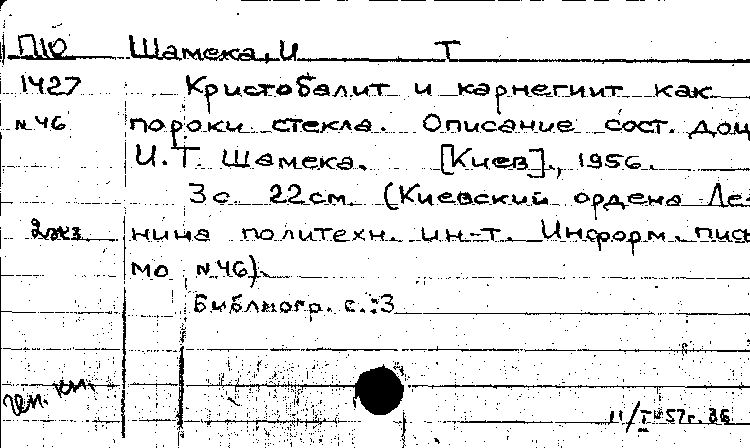 П10 Шамека, И Т
1427 Кристобалит и карнегиит как
№46 пороки стекла. Описание сост. доц.
И.Т. Шамека. [Киев]., 1956.
3с 22см. (Киевский ордена Ле-
2экз. нина политехн. ин-т. Информ. пись
мо №46).
Библиогр. с.:3
11/I-57г. 36